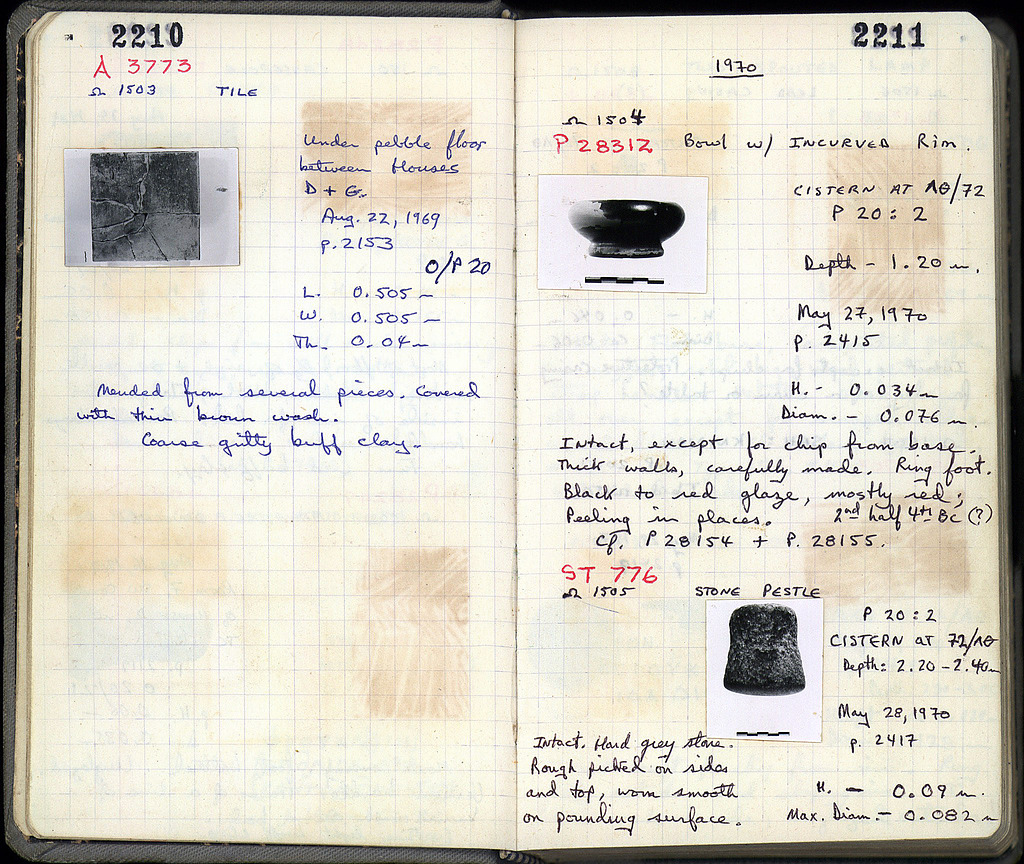 2210
A 3773
Ω 1503 TILE
Under pebble floor
between Houses
D + G.
Aug. 22, 1969
p. 2153
O/P 20
L. 0.505 m
W. 0.505 m
Th. 0.04 m
Mended from several pieces. Covered
with thin brown wash.
Coarse gritty buff clay.
2211
1970
Ω 1504
P 28312 Bowl w/ INCURVED Rim.
CISTERN AT ΛΘ/72
P 20:2
Depth - 1.20 m.
May 27, 1970
p. 2415
H. - 0.034 m
Diam. - 0.076 m.
Intact, except for chip from base.
Thick walls, carefully made. Ring foot.
Black to red glaze, mostly red;
Peeling in places. 2nd half 4th BC (?)
Cf. P 28154 + P. 28155.
ST 776
Ω 1505 STONE PESTLE
P 20:2
CISTERN AT 72/ΛΘ
Depth: 2.20 - 2.40 m
May 28, 1970
p. 2417
Intact. Hard grey stone.
Rough picked on sides
and top, worn smooth
on pounding surface.
H. - 0.09 m.
Max. Diam. - 0.082 m